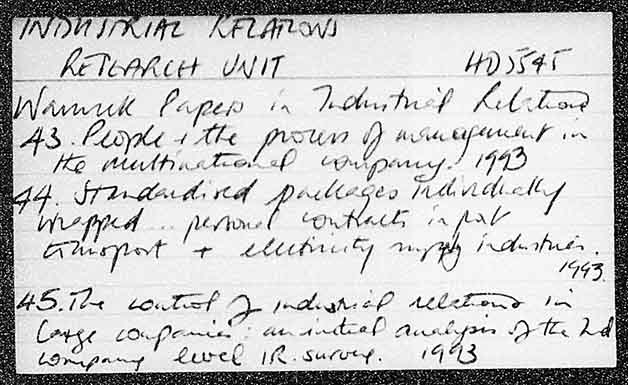 INDUSTRIAL RELATIONS
RESEARCH UNIT HD5545
Warwick Papers in Industrial Relations
43. People & the process of management in
the multinational company. 1993
44. Standardised packages individually
wrapped .. personal contracts in port
transport + electricity supply industries.
1993.
45. The control of industrial relations in
large companies : an initial analysis of the 2nd
company level IR survey. 1993